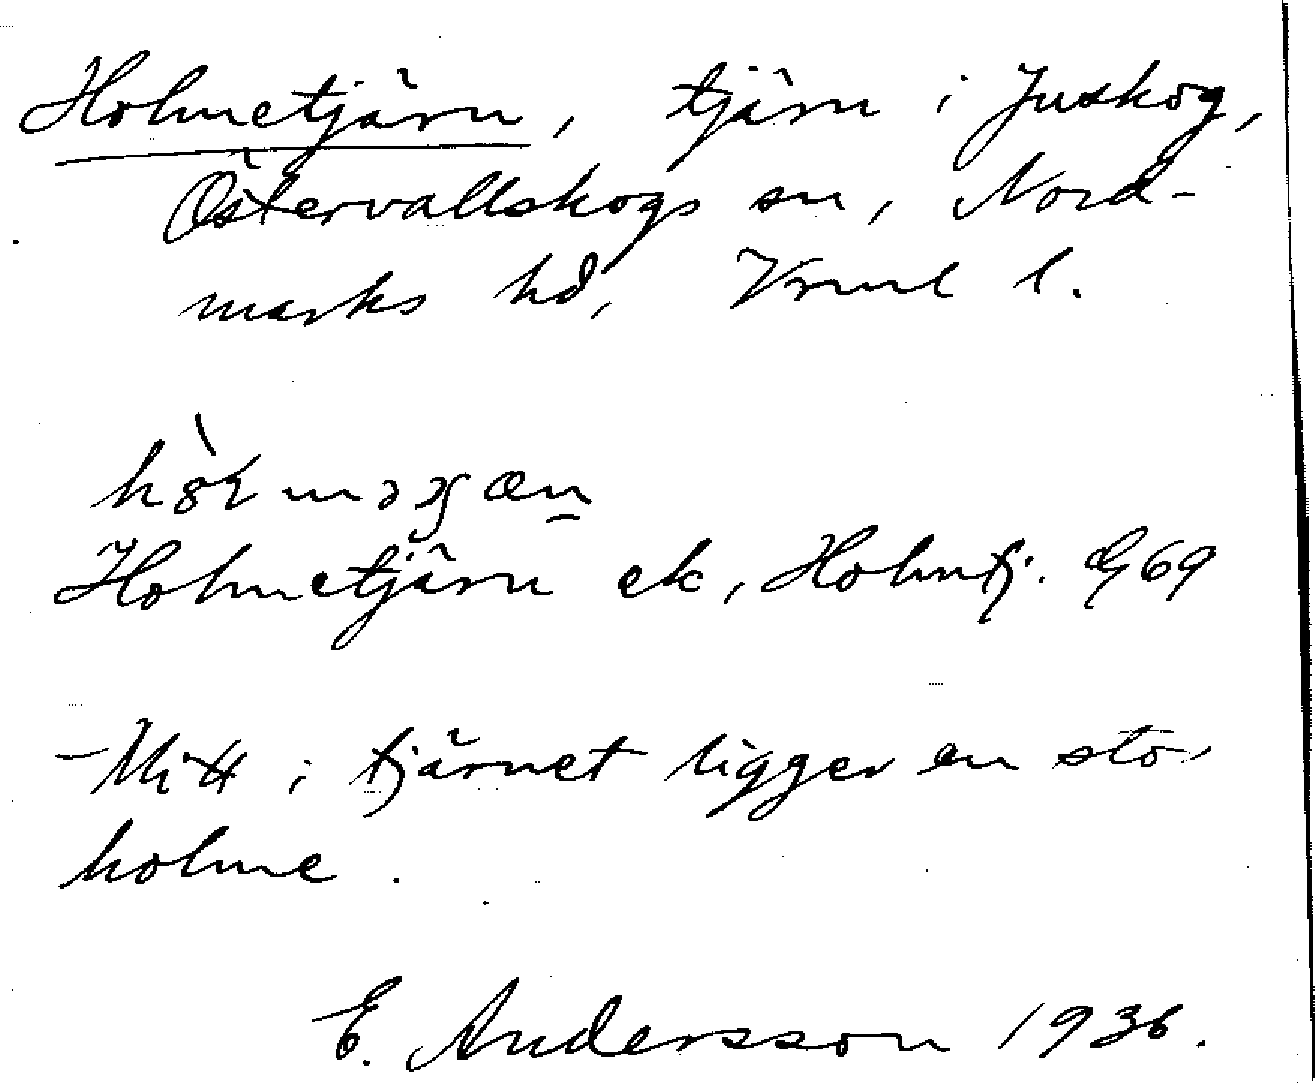 Holmetjärn, tjärn i Juskog,
Östervallskogs sn, Nord-
marks hd, Vrml l.
Holmetjärn ek, Holmtj. G 69
- Mitt i tjärnet ligger en sto.
holme.
E. Andersson 1936.